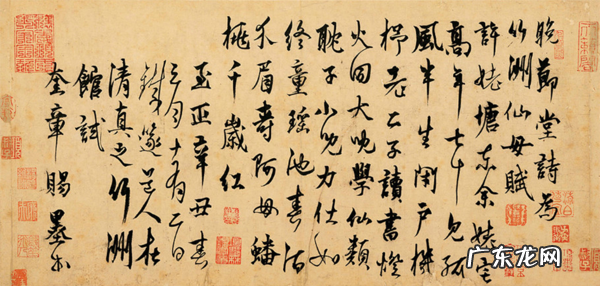 晚節堂詩為
竹洲仙母賦
許姥塘东余姥宅
高年七十見孤
風半生閉戶機
杼老二子讀書燈
火同大兒學仙類
耽子小兒力仕如
終童瑤池春酒
介眉壽阿母蟠
桃千歲紅
至正辛丑春
三月十有二日
鐵篴道人在
清真之竹洲
館試
奎章賜墨書
广东龙网